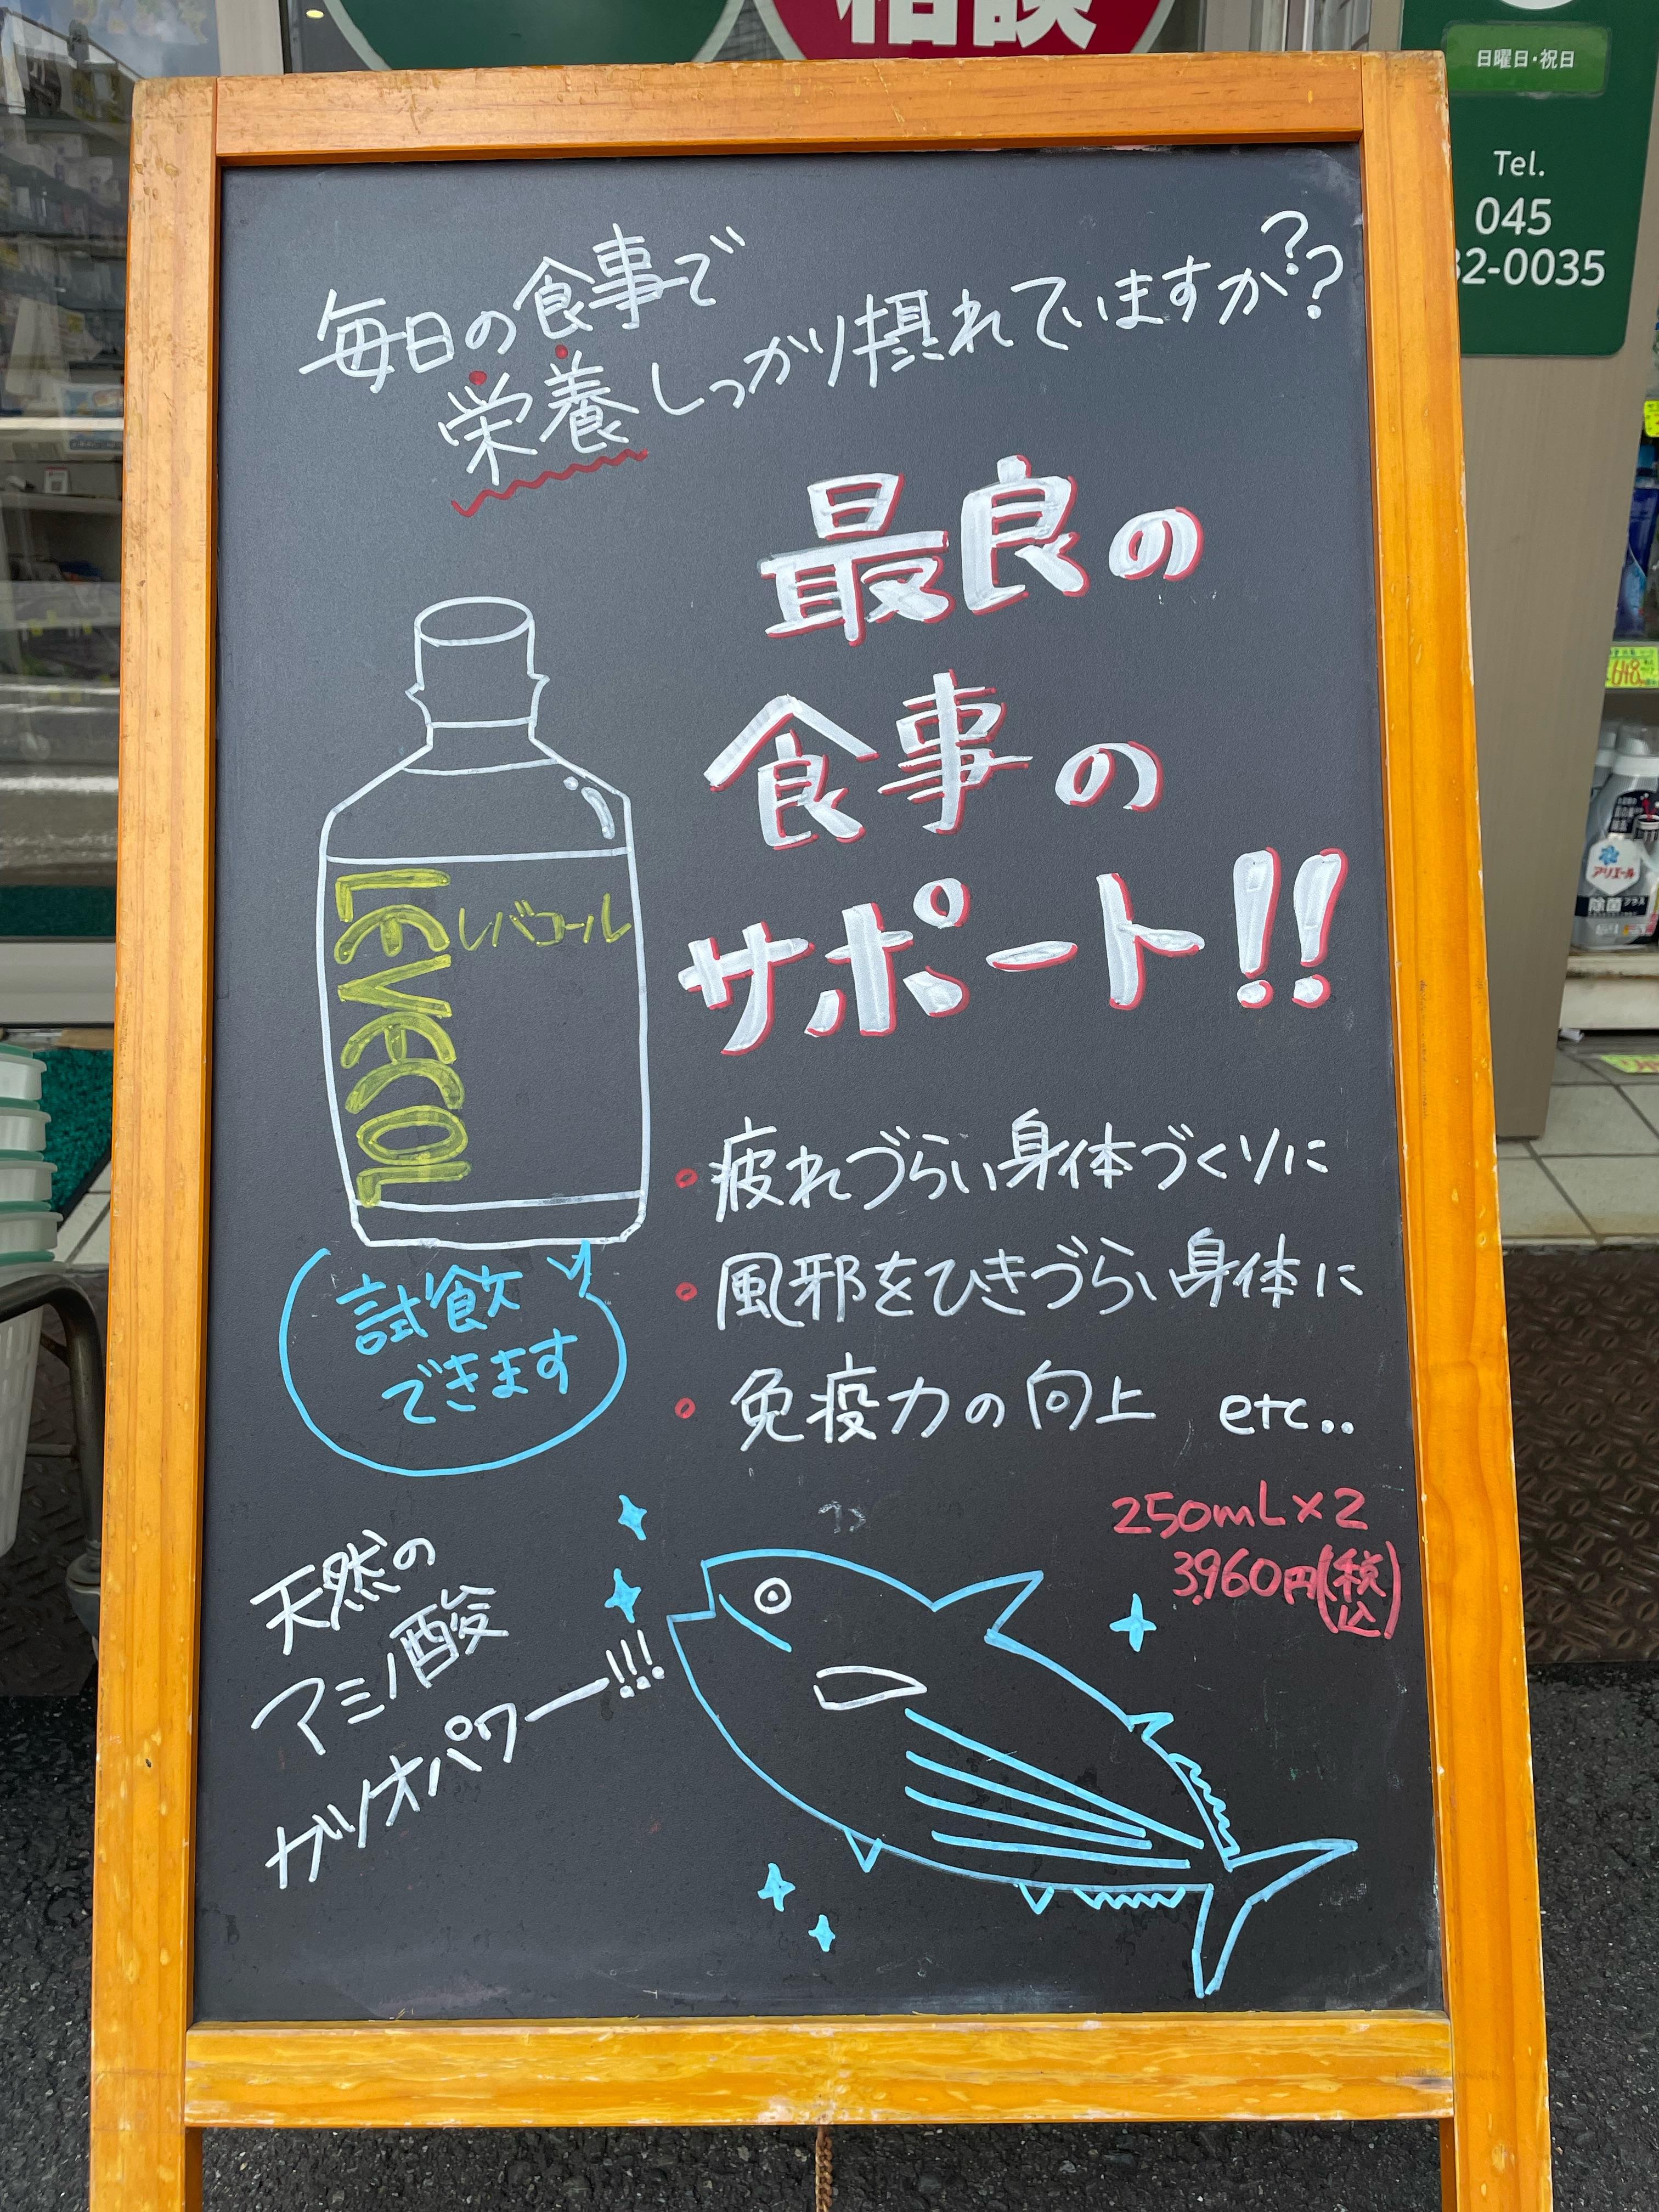 相談
日曜日・祝日
Tel.
045
32-0035
毎日の食事で
栄養しっかり摂れていますか??
最良の
食事の
サポート!!
LEVECOL
レバコール
・疲れづらい身体づくりに
・風邪をひきづらい身体に
・免疫力の向上 etc..
試飲
できます
250mL×2
3,960円(税込)
天然の
アミノ酸
ガツオパワー!!!
648
アリエール
除菌プラス